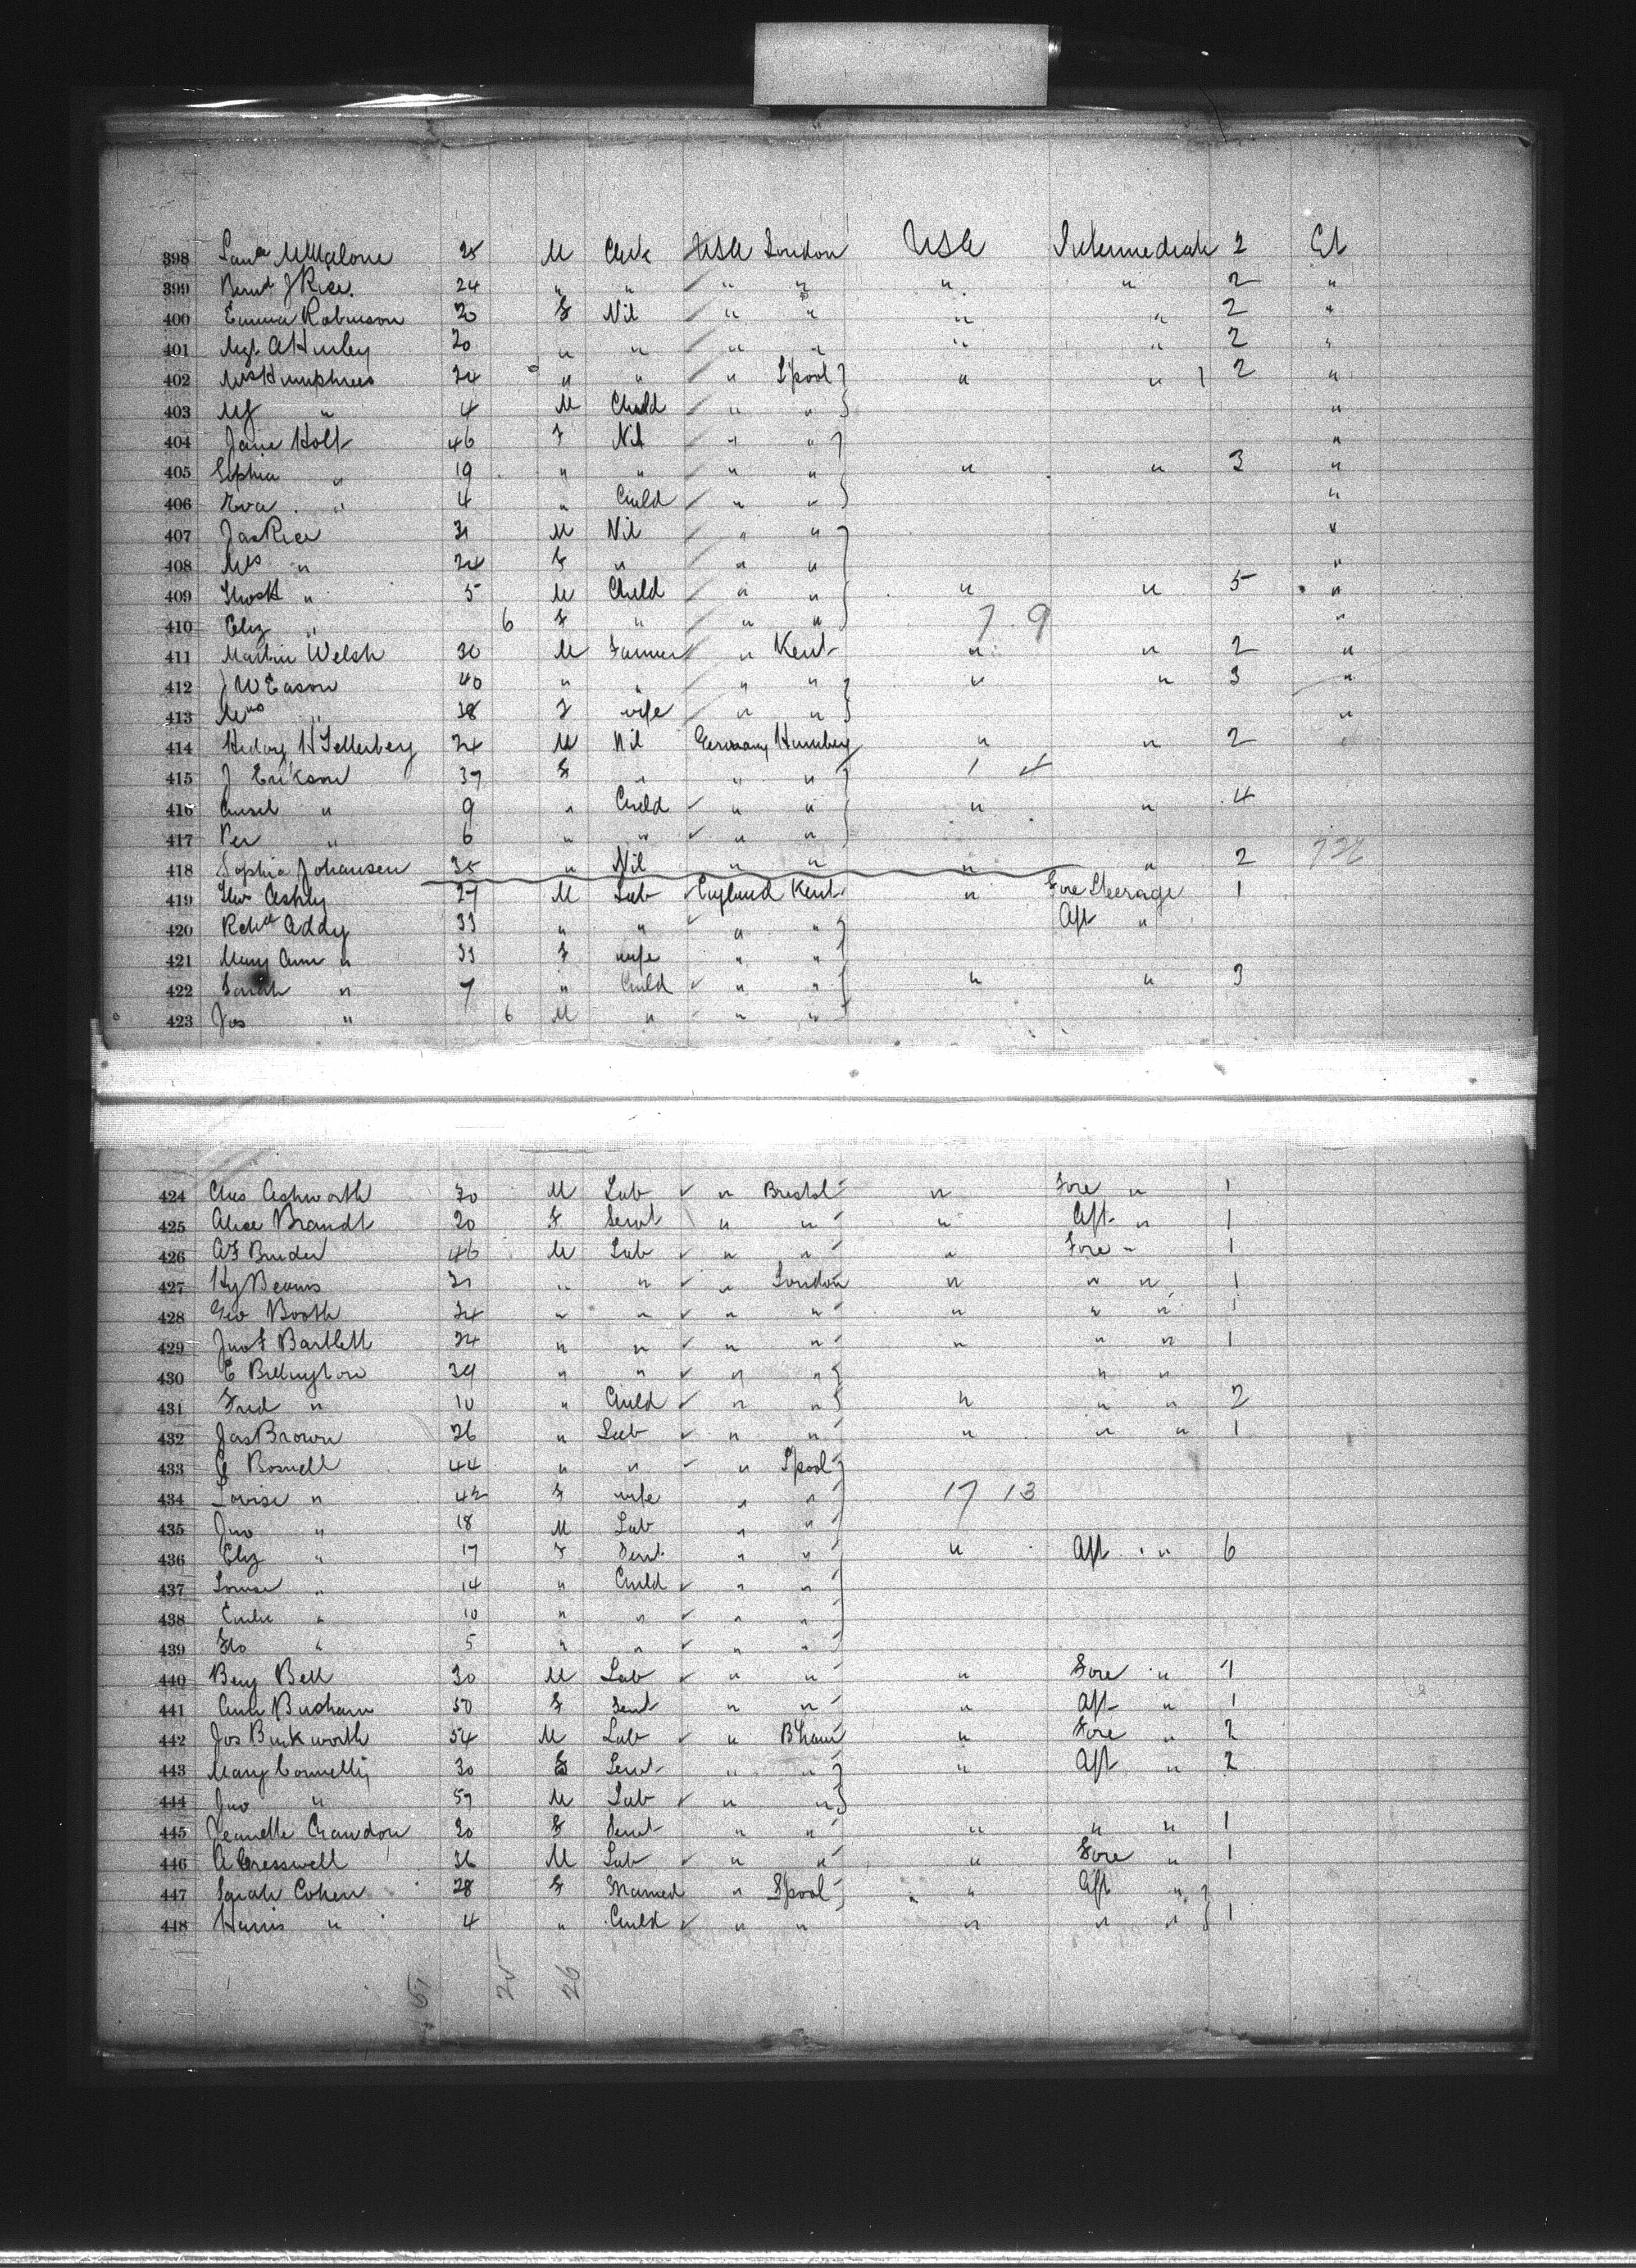 398 25 M Clerk USA London USA Intermediate 2 Ct
399 Bernd J Rice. 24 " " " " " " 2 "
400 Emma Robinson 20 F Nil " " " " 2 "
401 Mgt A Hurley 20 " " " " " " 2 "
402 Mrs Humphries 24 " " " L'pool " " 1 2 "
403 " 4 M Child " " "
404 Jane Holt 46 F Nil " " "
405 Sophia " 19 " " " " " " 3 "
406 Eva " 4 " Child " " "
407 Jas Rice 31 M Nil " " "
408 Mrs " 24 F " " " "
409 " 5 M Child " " " " 5 "
410 Eliz " 6 F " " " 7 9 "
411 Martin Welsh 30 M Farmer " Kent " " 2 "
412 J W Eason 40 " " " " " " 3 "
413 Mrs " 38 F wife " " "
414 24 M Nil Germany " " 2 "
415 J Erikson 37 F " " " 1 4
416 " 9 " Child " " " " 4
417 Per " 6 " " " "
418 Sophia Johansen 35 " Nil " " " " 2
419 Thos Ashly 27 M Lab England Kent " Fore Steerage 1
420 Richd Addy 33 " " " " Aft "
421 Mary Ann " 33 F wife " "
422 Sarah " 7 " Child " " " " 3
423 Jos " 6 M " " "
424 Chas Ashworth 30 M Lab " Bristol " Fore " 1
425 Alice Brandt 20 F Servt " " " Aft " 1
426 46 M Lab " " " Fore " 1
427 Hy Beams 31 " " " London " " " 1
428 Geo Booth 34 " " " " " " " 1
429 Jno F Bartlett 24 " " " " " " " 1
430 E Billington 39 " " " " " "
431 Fred " 10 " Child " " " " " 2
432 Jas Brown 26 " Lab " " " " " 1
433 Boswell 44 " " " L'pool
434 Louise " 42 F wife " " 17 13
435 Jno " 18 M Lab " "
436 Eliz " 17 F Servt " " " Aft " 6
437 Louisa " 14 " Child " "
438 " 10 " " " "
439 Flo " 5 " " " "
440 Benj Bell 30 M Lab " " " Fore " 1
441 50 F Servt " " " Aft " 1
442 Jos Buckworth 54 M Lab " B'ham " Fore " 2
443 Mary Connelly 30 F Servt " " " Aft " 2
444 Jno " 59 M Lab " "
445 20 F Servt " " " " " 1
446 A Cresswell 36 M Lab " " " Fore " 1
447 Sarah Cohen 28 F Married " L'pool " Aft "
448 Harris " 4 " Child " " " " " 1
51 25 26